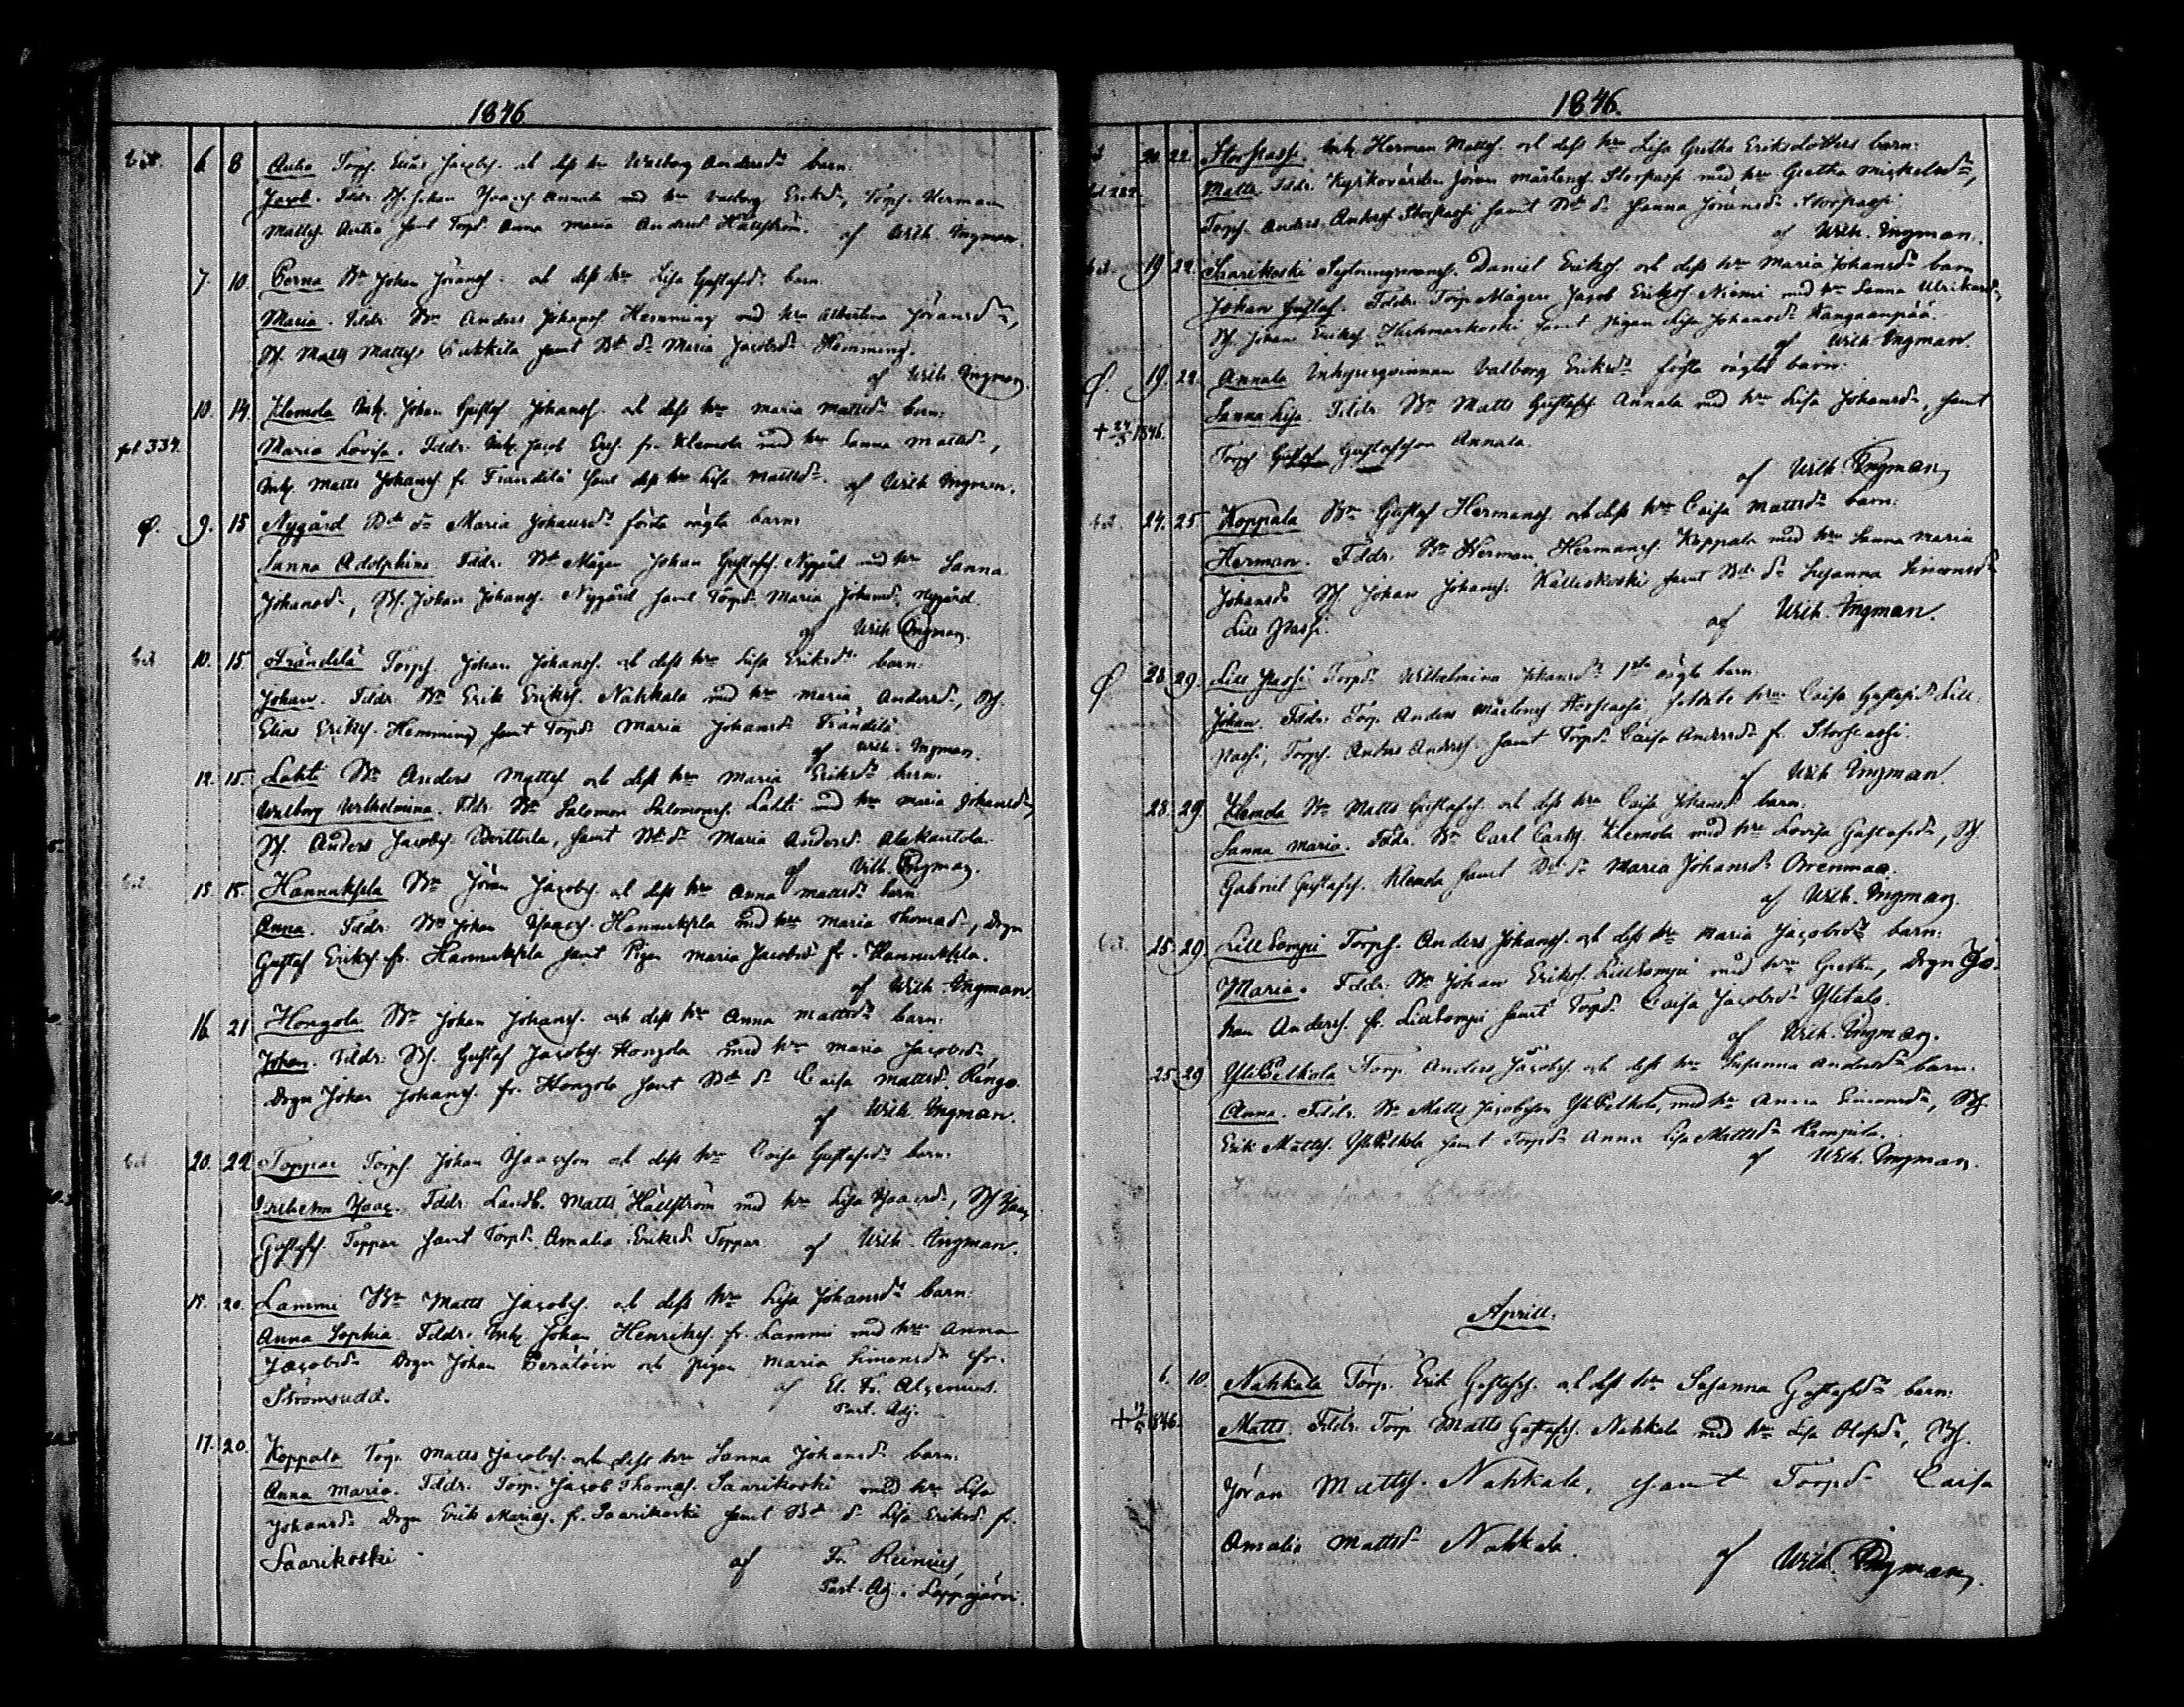 1846.
6 8 Antio Torp. Elias Jacobss. och dess hu Walborg Andersdr barn:
Jacob. Fddr. Bs. Johan Isaacss. Annala med hu Valborg Eriksdr, Torps. Herman
Mattss. Antio samt Torpd. Anna Maria Andersd. Hällström. af Wilh. Ingman.
7. 10 Perna Bn Johan Jöranss. och dess hu Lisa Gustafsdr barn.
Maria. Fddr. Bn Anders Johanss. Hemming med hu Albertina Jöransdr,
Bs. Matts Mattss. Pukkila samt Bd dr Maria Jacobsdr Hemming.
af Wilh. Ingman.
10. 14. Klemola Inh. Johan Gustaf Johanss. och dess hu Maria Mattsdr barn:
fol. 334. Maria Lovisa. Fddr. Inh. Jacob Ers. fr. Klemola med hu Sanna Mattsdr,
Inh. Matts Johanss. fr. Frändilä samt dess hu Lisa Mattsdr. af Wilh. Ingman.
9. 15 Nygård Bd dr Maria Johansdr första oägta barn:
Sanna Adolphina. Fddr. Bd Mågen Johan Gustafss. Nygård med hu Sanna
Johansdr, Bs. Johan Johanss. Nygård samt Torpd. Maria Johansd. Nygård.
af Wilh. Ingman.
10. 15 Frändilä Torps. Johan Johanss. och dess hu Lisa Eriksdr barn:
Johan. Fddr. Bn Erik Erikss. Nahkala med hu Maria Andersdr, Bs.
Elias Erikss. Hemming samt Torpdr Maria Johansdr Frändilä.
af Wilh. Ingman.
12. 15. Lahti Bn Anders Mattss. och dess hu Maria Eriksdr barn.
Walborg Wilhelmina. Fddr. Bn Salomon Salomonss. Lahti med hu Maria Johansdr,
Bs. Anders Jacobss. samt Bd dr Maria Andersd. Alakantola.
af Wilh. Ingman.
15 15. Hannuksela Bn Jöran Jacobss. och dess hu Anna Mattsdr barn
Anna. Fddr. Bn Johan Isaacss. Hannuksela med hu Maria Thomasdr, Drgn
Gustaf Erikss. fr. Hannuksela samt Pigan Maria Jacobsd. fr. Hannuksela.
af Wilh. Ingman.
16. 21 Hongola Bn Johan Johanss. och dess hu Anna Mattsdr barn:
Johan. Fddr. Bs. Gustaf Jacobss. Hongola med hu Maria Jacobsdr,
Drgn Johan Johanss. fr. Hongola samt Bd dr Caisa Mattsd. Rengo.
af Wilh. Ingman.
20. 22 Toppar Torps. Johan Isaacsson och dess hu Caisa Gustafsdr barn:
Wilhelm Isaac. Fddr. Landb. Matts Hällström med hu Lisa Isaacsdr, Bs Isaac
Gustafss. Toppar samt Torpdr Amalia Eriksd. Toppar. af Wilh. Ingman.
15. 20. Lammi Bn Matts Jacobss. och dess hu Lisa Johansdr barn:
Anna Sophia. Fddr. Inh. Johan Henrikss. fr. Lammi med hu Anna
Jacobsdr Drgn Johan Perätöin och pigan Maria Simonsdr fr.
Strömsudd. af El. Fr. Alcenius.
Past. Adj.
17. 20. Koppala Torp. Matts Jacobss. och dess hu Sanna Johansdr barn:
Anna Maria. Fddr. Torp. Jacob Thomass. Saarikoski med hu Lisa
Johansdr Drgn Erik Mariass. fr. Saarikoski samt Bd dr Lisa Eriksd. fr.
Saarikoski. af Fr. Reinius,
Past. Adj. i Lappajärvi.
1846.
20. 22. Storpassi. Inh. Herman Mattss. och dess hu Lisa Gretha Eriksdotters barn:
fol. 282. Matts. Fddr. Kyrkovärden Jöran Mårtenss. Storpassi med hu Gretha Mickelsdr,
Torps. Anders Anderss. Storpassi samt Bd dr Sanna Jöransdr Storpassi.
af Wilh. Ingman.
19 22. Saarikoski Sytningsmanss. Daniel Erikss. och dess hu Maria Johansdr barn
Johan Gustaf. Fddr. Torp. Mågen Jacob Erikss. Niemi med hu Sanna Ulriksdr,
Bs. Johan Erikss. Huhmarkoski samt pigan Lisa Johansdr Kangaanpää.
af Wilh. Ingman.
19. 22. Annala Inhysesqvinnan Valborg Eriksdr första oägta barn:
+ 24/5 1846. Sanna Lisa. Fddr. Bn Matts Gustafss. Annala med hu Lisa Johansdr, samt
Torps. Gustaf Gustafsson Annala.
af Wilh. Ingman,
24. 25 Koppala Bn Gustaf Hermanss. och dess hu Caisa Mattsdr barn:
Herman. Fddr. Bn Herman Hermanss. Koppala med hu Sanna Maria
Johansdr Bs Johan Johanss. Kalliokoski samt Bd dr Susanna Simonsdr
Lill Passi. af Wilh. Ingman.
28 29. Lill Passi Torpdr Wilhelmina Johansdr 1sta oägta barn:
Johan. Fddr. Torp. Anders Mårtenss. Storpassi, hu Caisa Gustafsdr Lill
Passi, Torps. Anders Anderss. samt Torpdr Caisa Andersdr fr. Storpassi.
af Wilh. Ingman.
28. 29. Klemola Bn Matts Gustafss. och dess hu Caisa Johansdr barn:
Sanna Maria. Fddr. Bn Carl Carlss. Klemola med hu Lovisa Gustafsdr, Bs
Gabriel Gustafss. Klemola samt Bd dr Maria Johansdr Orrenmaa.
af Wilh. Ingman.
25. 29. Lillsompi Torps. Anders Johanss. och dess hu Maria Jacobsdr barn:
Maria. Fddr. Bn Johan Erikss. Lillsompi med hu Gretha, Drgn Jo-
han Anderss. fr. Lillsompi samt Torpd. Caisa Jacobsdr Ylitalo.
af Wilh. Ingman.
25. 29 YliPelkola Torp. Anders Jacobss. och dess hu Susanna Andersdr barn.
Anna. Fddr. Bn Matts Jacobsson YliPelkola, med hu Anna Simonsdr, Bs.
Erik Mattss. YliPelkola samt Torpdr Anna Lisa Mattsdr Kampila.
af Wilh. Ingman.
Aprill.
6. 10. Nahkala Torp. Erik Gustafss. och dess hu Susanna Gustafsdr barn:
1846. Matts. Fddr. Torp. Matts Gustafss. Nahkala med hu Lisa Olofsdr, Bs.
Jöran Mattss. Nahkala, samt Torpdr Caisa
Amalia Mattsdr Nahkala. af Wilh. Ingman,